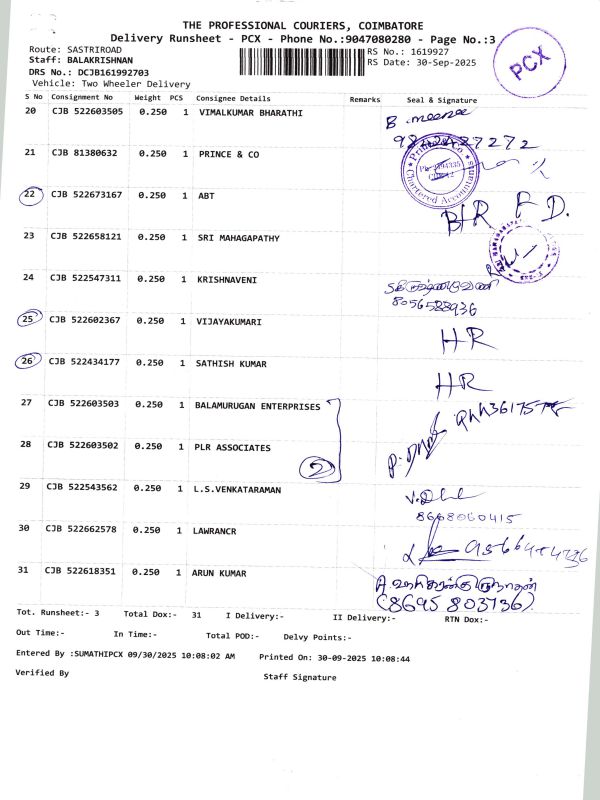 THE PROFESSIONAL COURIERS, COIMBATORE
Delivery Runsheet - PCX - Phone No.:9047080280 - Page No.:3
Route: SASTRIROAD
RS No.: 1619927
Staff: BALAKRISHNAN
RS Date: 30-Sep-2025
DRS No.: DCJB161992703
Vehicle: Two Wheeler Delivery
PCX
S No Consignment No Weight PCS Consignee Details Remarks Seal & Signature
20 CJB 522603505 0.250 1 VIMALKUMAR BHARATHI B. meena
21 CJB 81380632 0.250 1 PRINCE & CO
Chartered Accountants
22 CJB 522673167 0.250 1 ABT F D.
23 CJB 522658121 0.250 1 SRI MAHAGAPATHY
24 CJB 522547311 0.250 1 KRISHNAVENI
8056588936
25 CJB 522602367 0.250 1 VIJAYAKUMARI HR
26 CJB 522434177 0.250 1 SATHISH KUMAR HR
27 CJB 522603503 0.250 1 BALAMURUGAN ENTERPRISES
28 CJB 522603502 0.250 1 PLR ASSOCIATES
2
29 CJB 522543562 0.250 1 L.S.VENKATARAMAN
8668060415
30 CJB 522662578 0.250 1 LAWRANCR
31 CJB 522618351 0.250 1 ARUN KUMAR
(8695 803736)
Tot. Runsheet:- 3 Total Dox:- 31 I Delivery:- II Delivery:- RTN Dox:-
Out Time:- In Time:- Total POD:- Delvy Points:-
Entered By :SUMATHIPCX 09/30/2025 10:08:02 AM Printed On: 30-09-2025 10:08:44
Verified By Staff Signature